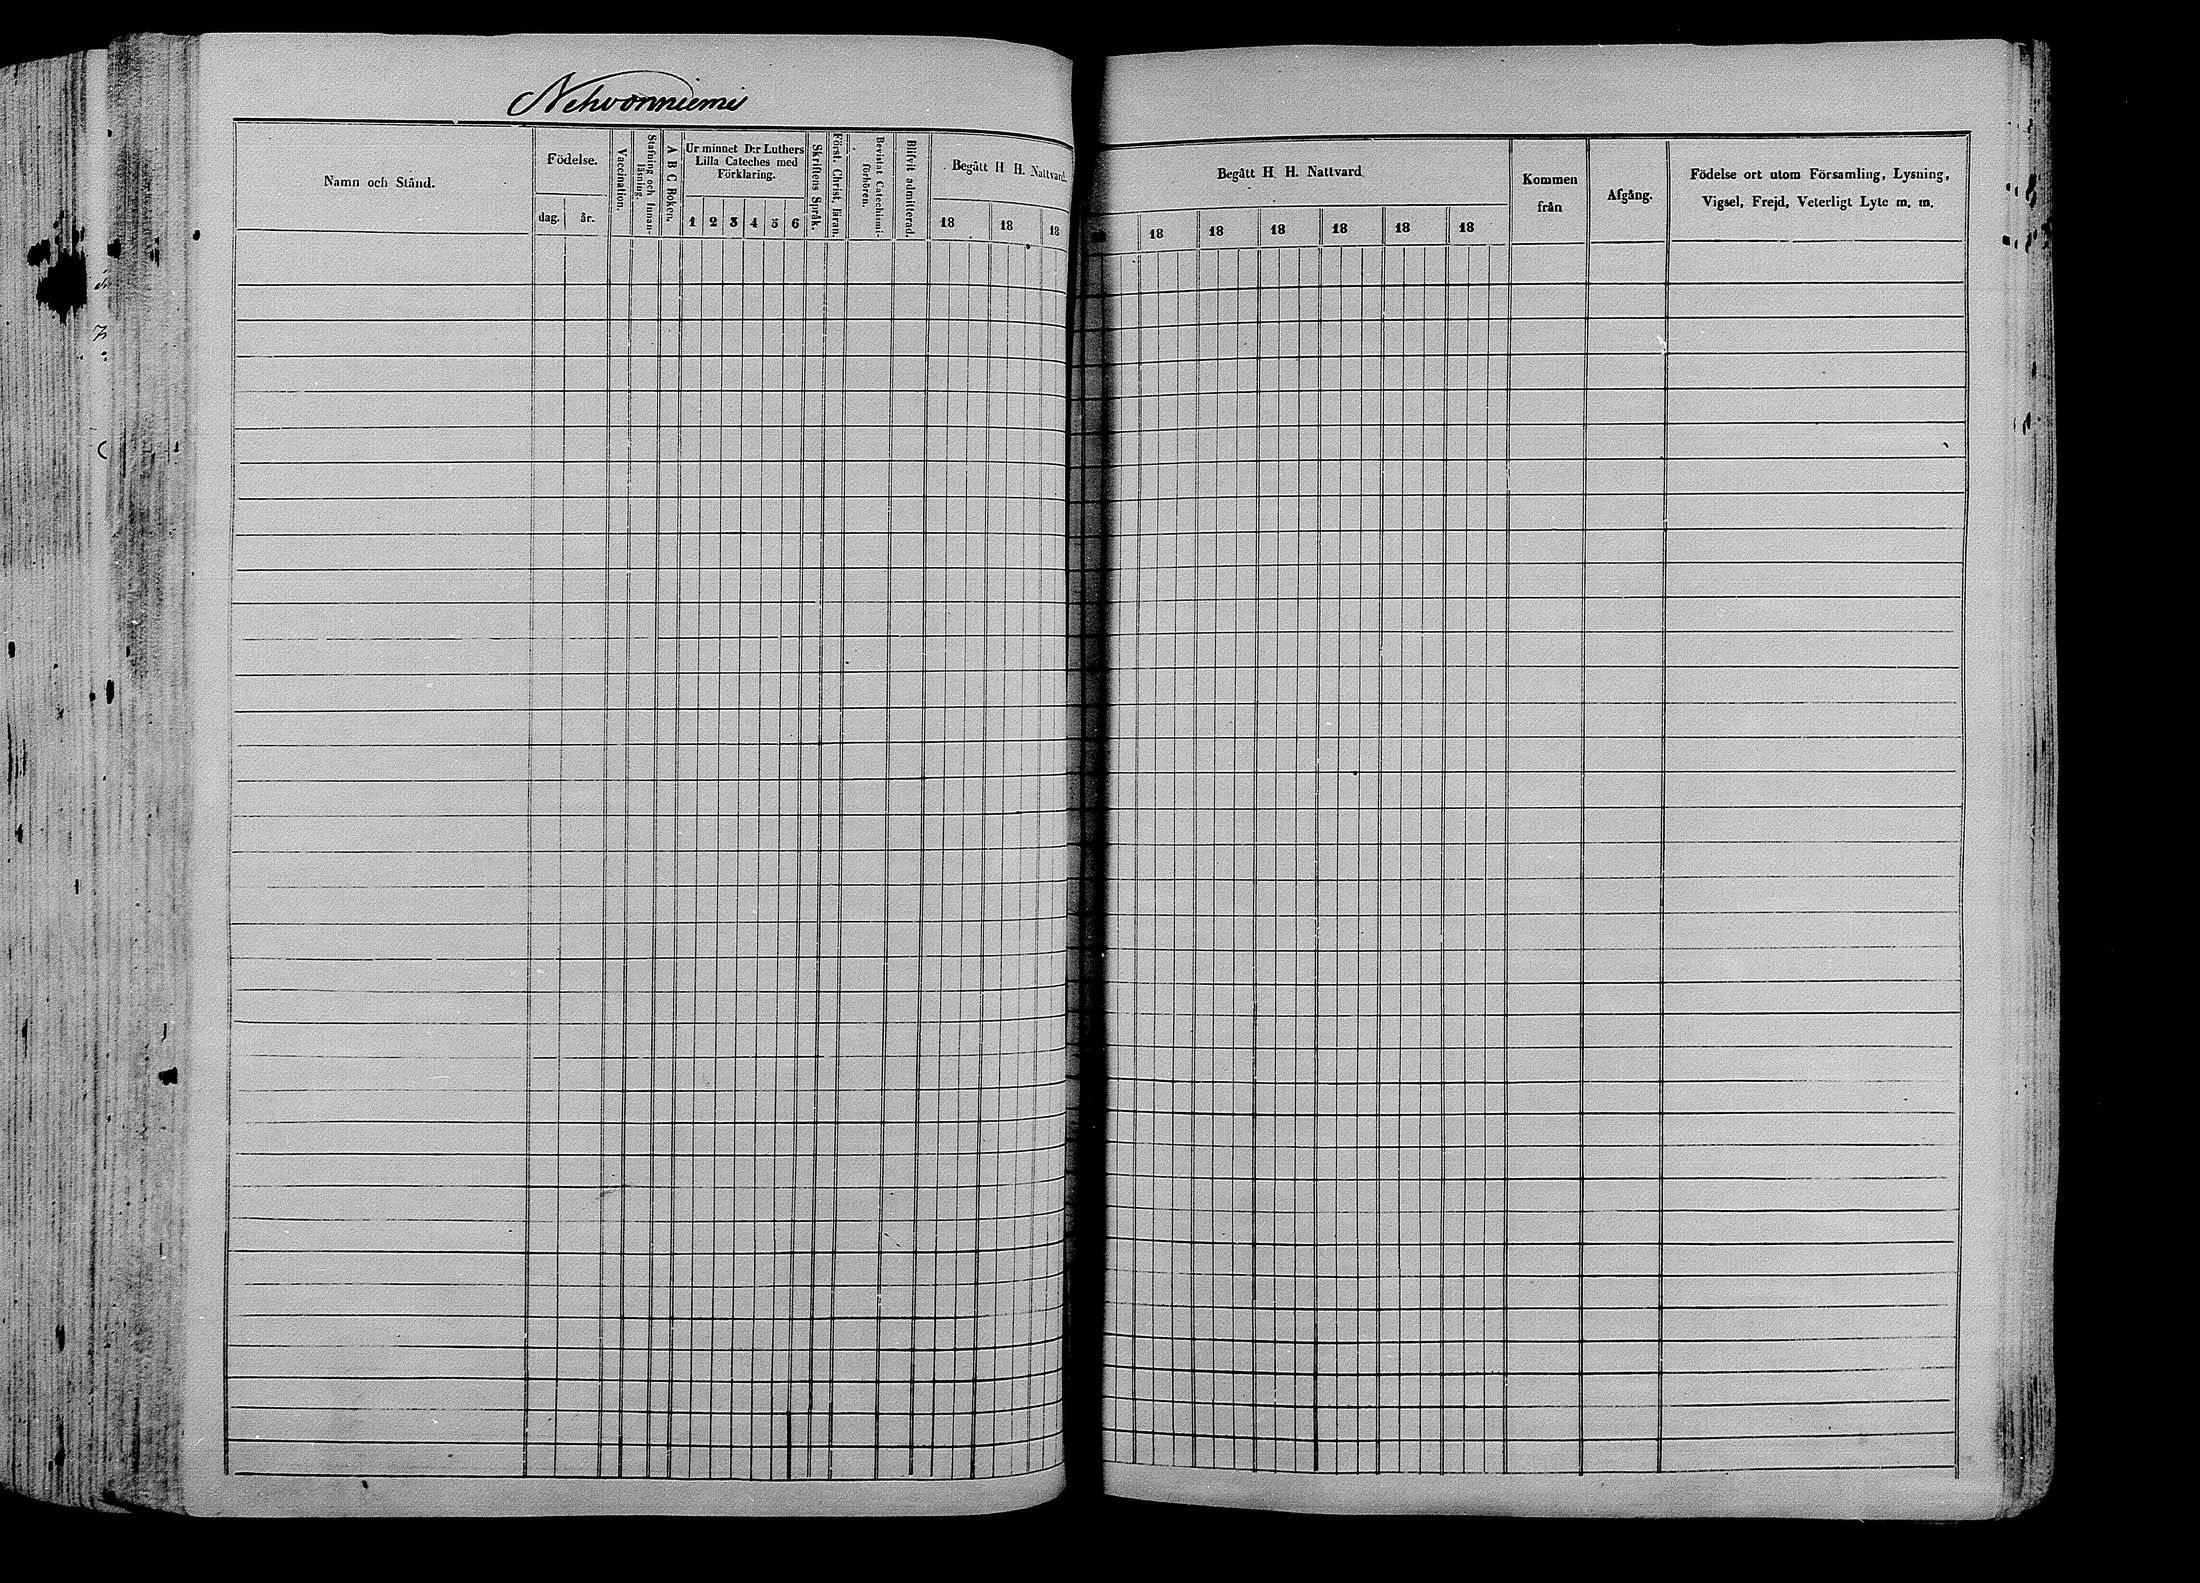 Nehvonniemi
Namn och Stånd.
Födelse.
dag. år.
Vaccination.
Stafning och Innan-
läsning.
A B C Boken.
Ur minnet D:r Luthers
Lilla Cateches med
Förklaring.
1 2 3 4 5 6
Skriftens Språk.
Först. Christ. läran.
Bevistat Catechismi-
förhören.
Blifvit admitterad.
Begått H. H. Nattvard.
18 18 18
Begått H. H. Nattvard.
18 18 18 18 18 18
Kommen
från
Afgång.
Födelse ort utom Församling, Lysning,
Vigsel, Frejd, Veterligt Lyte m. m.